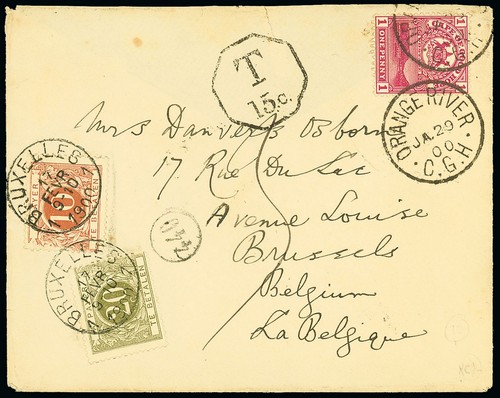 T
15c.
1 1
1 ONE PENNY 1
ORANGE RIVER
JA 29
00
C.G.H
Mrs Danvers Osborn
17 Rue Du Lac
Avenue Louise
Brussels
Belgium
La Belgique
BRUXELLES 1
17
FEVR
1900
10
BRUXELLES 1
17
FEVR
TE BETALEN
440